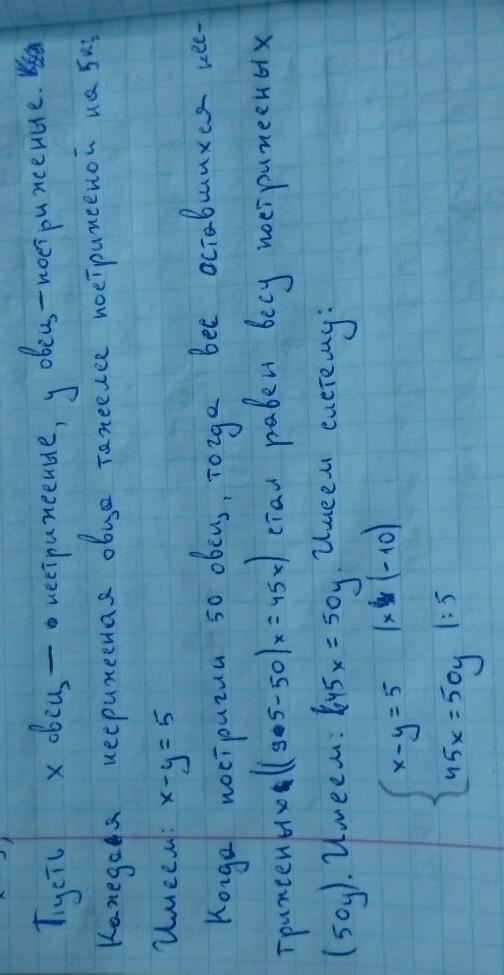 Пусть x овец — нестриженые, y овец — постриженые.
Каждая несриженая овца тяжелее постриженой на 5 кг;
Имеем: x-y=5
Когда постригли 50 овец, тогда вес оставшихся нес-
триженых ((95-50)x=45x) стал равен весу постриженых
(50y). Имеем: 45x=50y. Имеем систему:
{ x-y=5 |x (-10)
45x=50y |:5